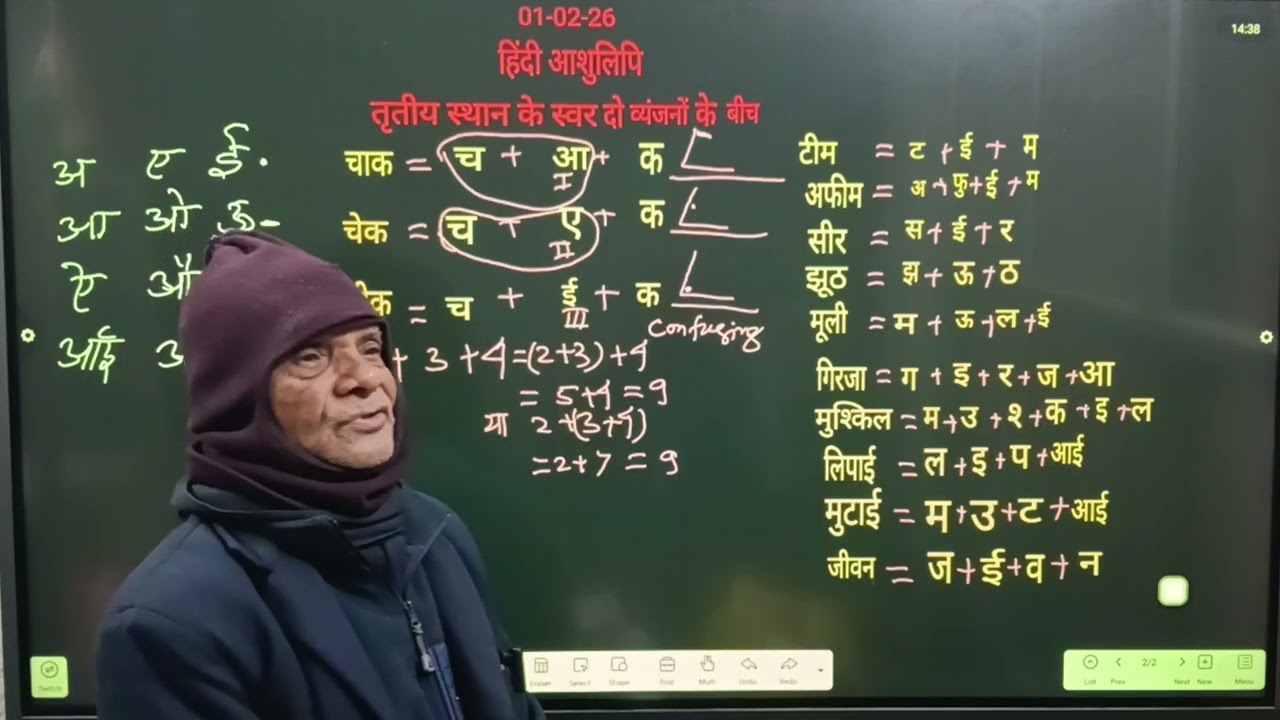 01-02-26
14:38
हिंदी आशुलिपि
तृतीय स्थान के स्वर दो व्यंजनों के बीच
अ ए ई.
आ ओ ऊ-
ऐ औ
आई
चाक = च + आ + क
I
चेक = च + ए + क
II
क = च + ई + क
III
Confusing
+ 3 + 4 = (2+3) + 4
= 5+4 = 9
या 2 + (3+4)
= 2+7 = 9
टीम = ट + ई + म
अफीम = अ + फ + ई + म
सीर = स + ई + र
झूठ = झ + ऊ + ठ
मूली = म + ऊ + ल + ई
गिरजा = ग + इ + र + ज + आ
मुश्किल = म + उ + श + क + इ + ल
लिपाई = ल + इ + प + आई
मुटाई = म + उ + ट + आई
जीवन = ज + ई + व + न
Eraser Select Shape Tool Multi Undo Redo
List Prev 2/2 Next New Menu